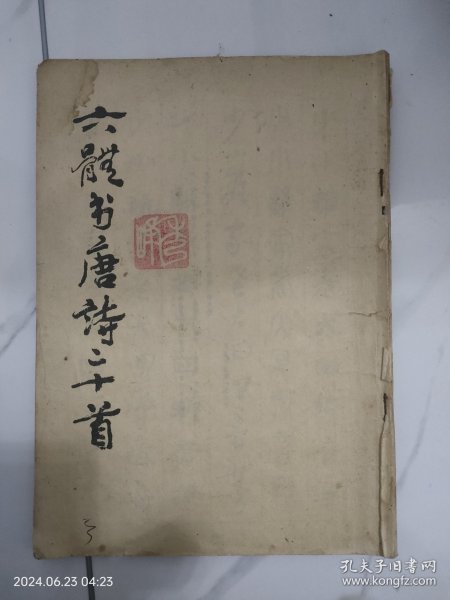 六體书唐詩二十首
2024.06.23 04:23
孔夫子旧书网
www.kongfz.com